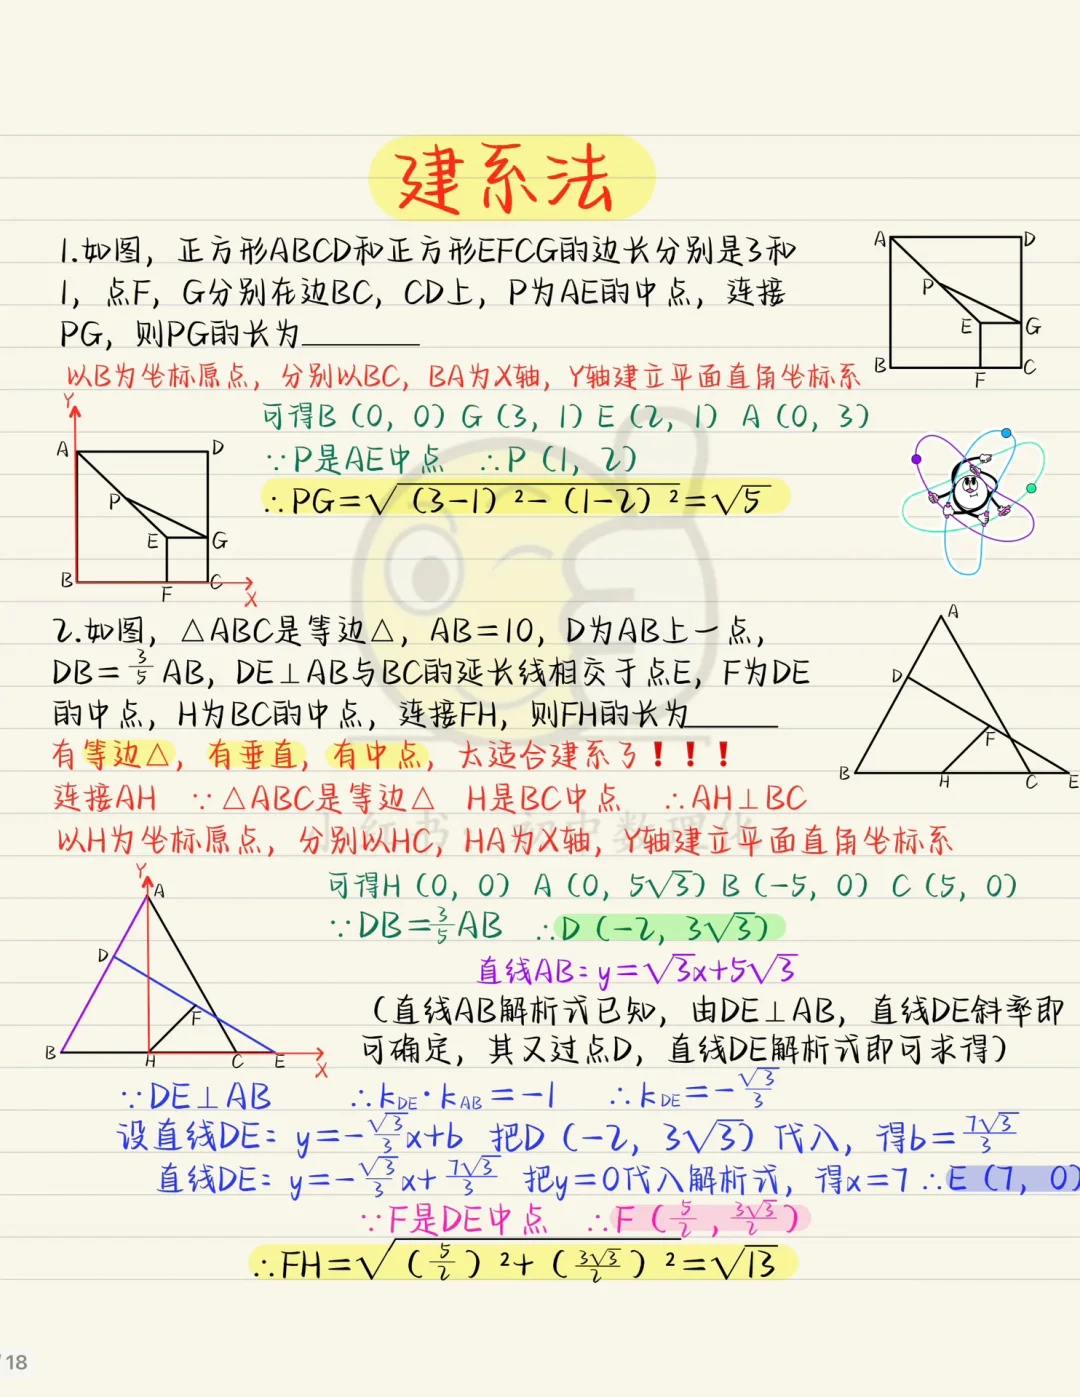 建系法
1.如图，正方形ABCD和正方形EFCG的边长分别是3和
1，点F，G分别在边BC，CD上，P为AE的中点，连接
PG，则PG的长为________
A D
P
E G
B F C
以B为坐标原点，分别以BC，BA为X轴，Y轴建立平面直角坐标系
可得B（0，0）G（3，1）E（2，1）A（0，3）
∵P是AE中点 ∴P（1，2）
∴PG=√(3-1)²-(1-2)²=√5
Y
A D
P
E G
B F C
X
2.如图，△ABC是等边△，AB=10，D为AB上一点，
DB=3/5 AB，DE⊥AB与BC的延长线相交于点E，F为DE
的中点，H为BC的中点，连接FH，则FH的长为______
A
D
F
B H C E
有等边△，有垂直，有中点，太适合建系了！！！
连接AH ∵△ABC是等边△ H是BC中点 ∴AH⊥BC
以H为坐标原点，分别以HC，HA为X轴，Y轴建立平面直角坐标系
小红书：初中数理化
可得H（0，0）A（0，5√3）B（-5，0）C（5，0）
∵DB=3/5AB ∴D（-2，3√3）
直线AB：y=√3x+5√3
（直线AB解析式已知，由DE⊥AB，直线DE斜率即
可确定，其又过点D，直线DE解析式即可求得）
Y
A
D
F
B H C E
X
∵DE⊥AB ∴kDE·kAB=-1 ∴kDE=-√3/3
设直线DE：y=-√3/3x+b 把D（-2，3√3）代入，得b=7√3/3
直线DE：y=-√3/3x+7√3/3 把y=0代入解析式，得x=7 ∴E（7，0）
∵F是DE中点 ∴F（5/2，3√3/2）
∴FH=√(5/2)²+(3√3/2)²=√13
/18